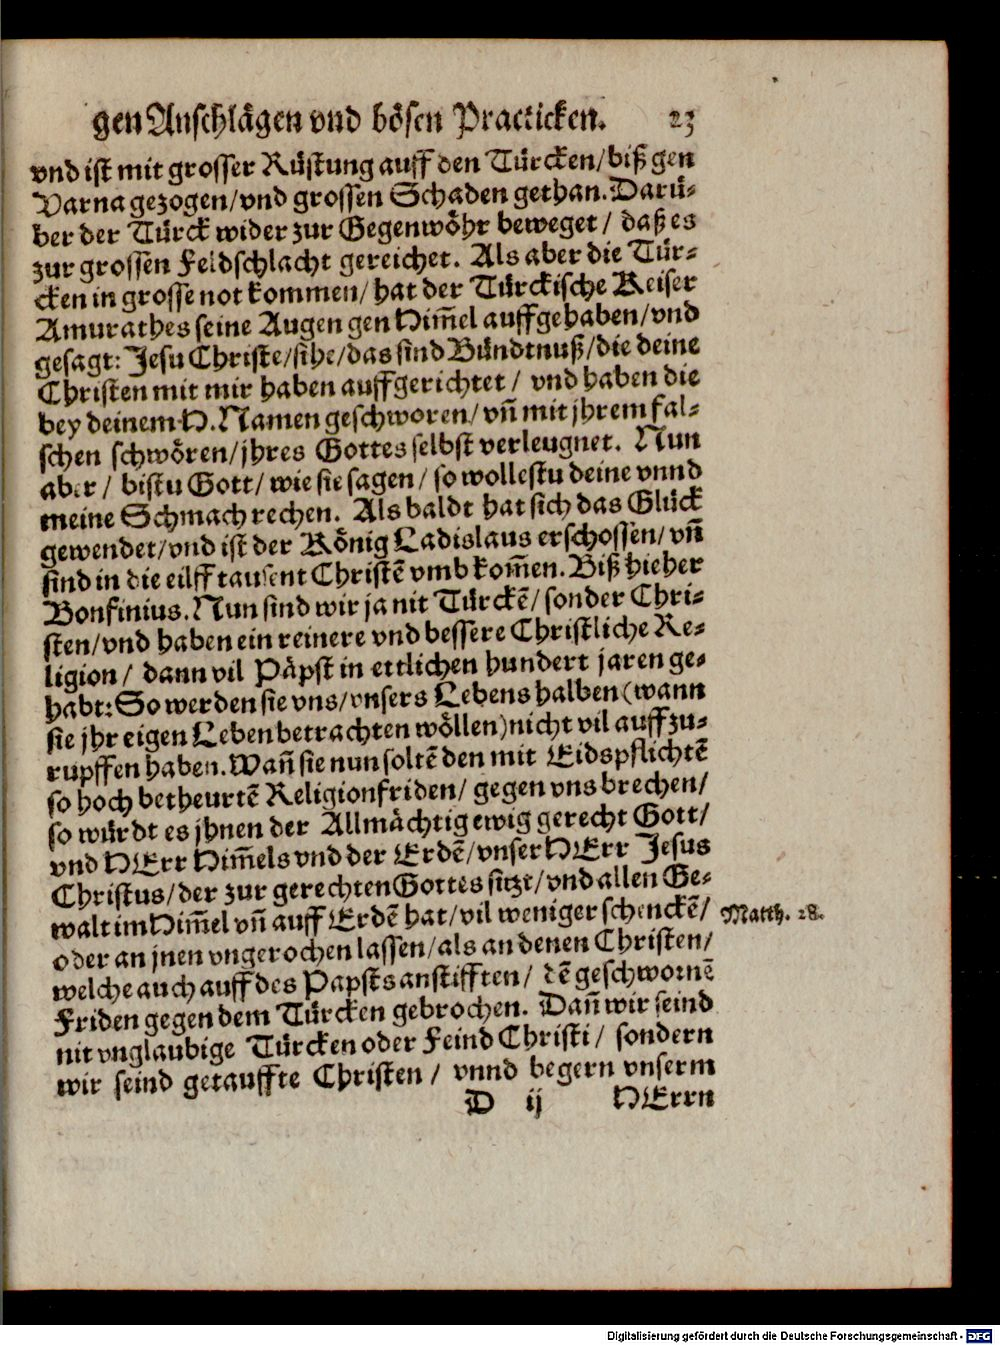 gen Anschlägen vnd bösen Practicken. 23
vnd ist mit grosser Rüstung auff den Türcken/biß gen
Varna gezogen/vnd grossen Schaden gethan. Darü-
ber der Türck wider zur Gegenwöhr beweget/ daß es
zur grossen Feldschlacht gereichet. Als aber die Tür-
cken in grosse not kommen/ hat der Türckische Keiser
Amurathes seine Augen gen Him̃el auffgehaben/vnd
gesagt: Jesu Christe/sihe/das sind Bündtnuß/die deine
Christen mit mir haben auffgerichtet/ vnd haben die
bey deinem H. Namen geschworen/ vñ mit jhrem fal-
schen schwören/jhres Gottes selbst verleugnet. Nun
aber/ bistu Gott/ wie sie sagen/ so wollestu deine vnnd
meine Schmach rechen. Als baldt hat sich das Glück
gewendet/vnd ist der König Ladislaus erschossen/ vñ
sind in die eilff tausent Christẽ vmbkom̃en. Biß hieher
Bonfinius. Nun sind wir ja nit Türckẽ/ sonder Chri-
sten/vnd haben ein reinere vnd bessere Christliche Re-
ligion/ dann vil Päpst in ettlichen hundert jaren ge-
habt: So werden sie vns/vnsers Lebens halben (wann
sie jhr eigen Leben betrachten wöllen) nicht vil auffzu-
rupffen haben. Wañ sie nun soltẽ den mit Eidspflichtẽ
so hoch betheurtẽ Religionfriden/ gegen vns brechen/
so würdt es jhnen der Allmächtig ewig gerecht Gott/
vnd HErr Him̃els vnd der Erdẽ/vnser HErr Jesus
Christus/der zur gerechten Gottes sitzt/vnd allen Ge-
walt im Him̃el vñ auff Erdẽ hat/vil weniger schenckẽ/
Matth. 28.
oder an jnen vngerochen lassen/als an denen Christen/
welche auch auff des Papsts anstifften/ dẽ geschwornẽ
Friden gegen dem Türcken gebrochen. Dañ wir seind
nit vnglaubige Türcken oder Feind Christi/ sondern
wir seind getauffte Christen/ vnnd begern vnserm
D ij HErrn
Digitalisierung gefördert durch die Deutsche Forschungsgemeinschaft - DFG